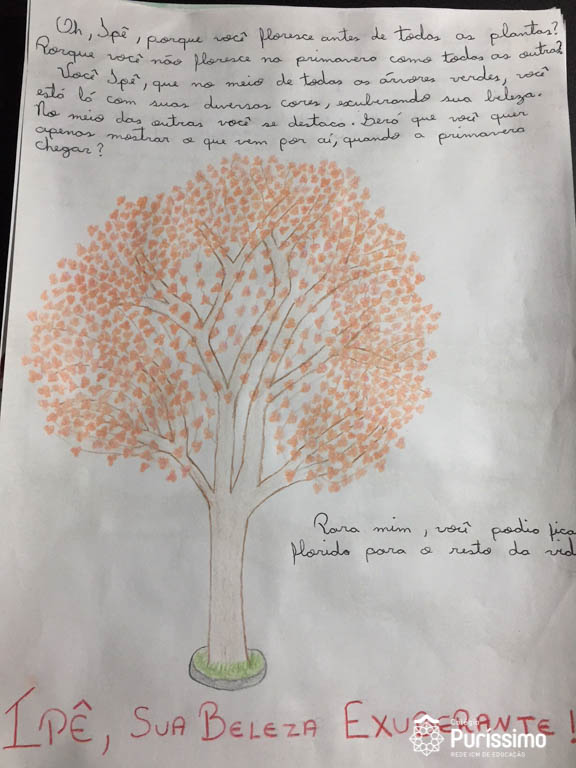 Oh, Ipê, porque você floresce antes de todas as plantas?
Porque você não floresce na primavera como todas as outras?
Você Ipê, que no meio de todas as árvores verdes, você
está lá com suas diversas cores, exuberando sua beleza.
No meio das outras você se destaca. Será que você quer
apenas mostrar o que vem por aí, quando a primavera
chegar?
Para mim, você podia fica
florido para o resto da vid
IPÊ, SUA BELEZA EXUBERANTE!
Colégio
Puríssimo
REDE ICM DE EDUCAÇÃO